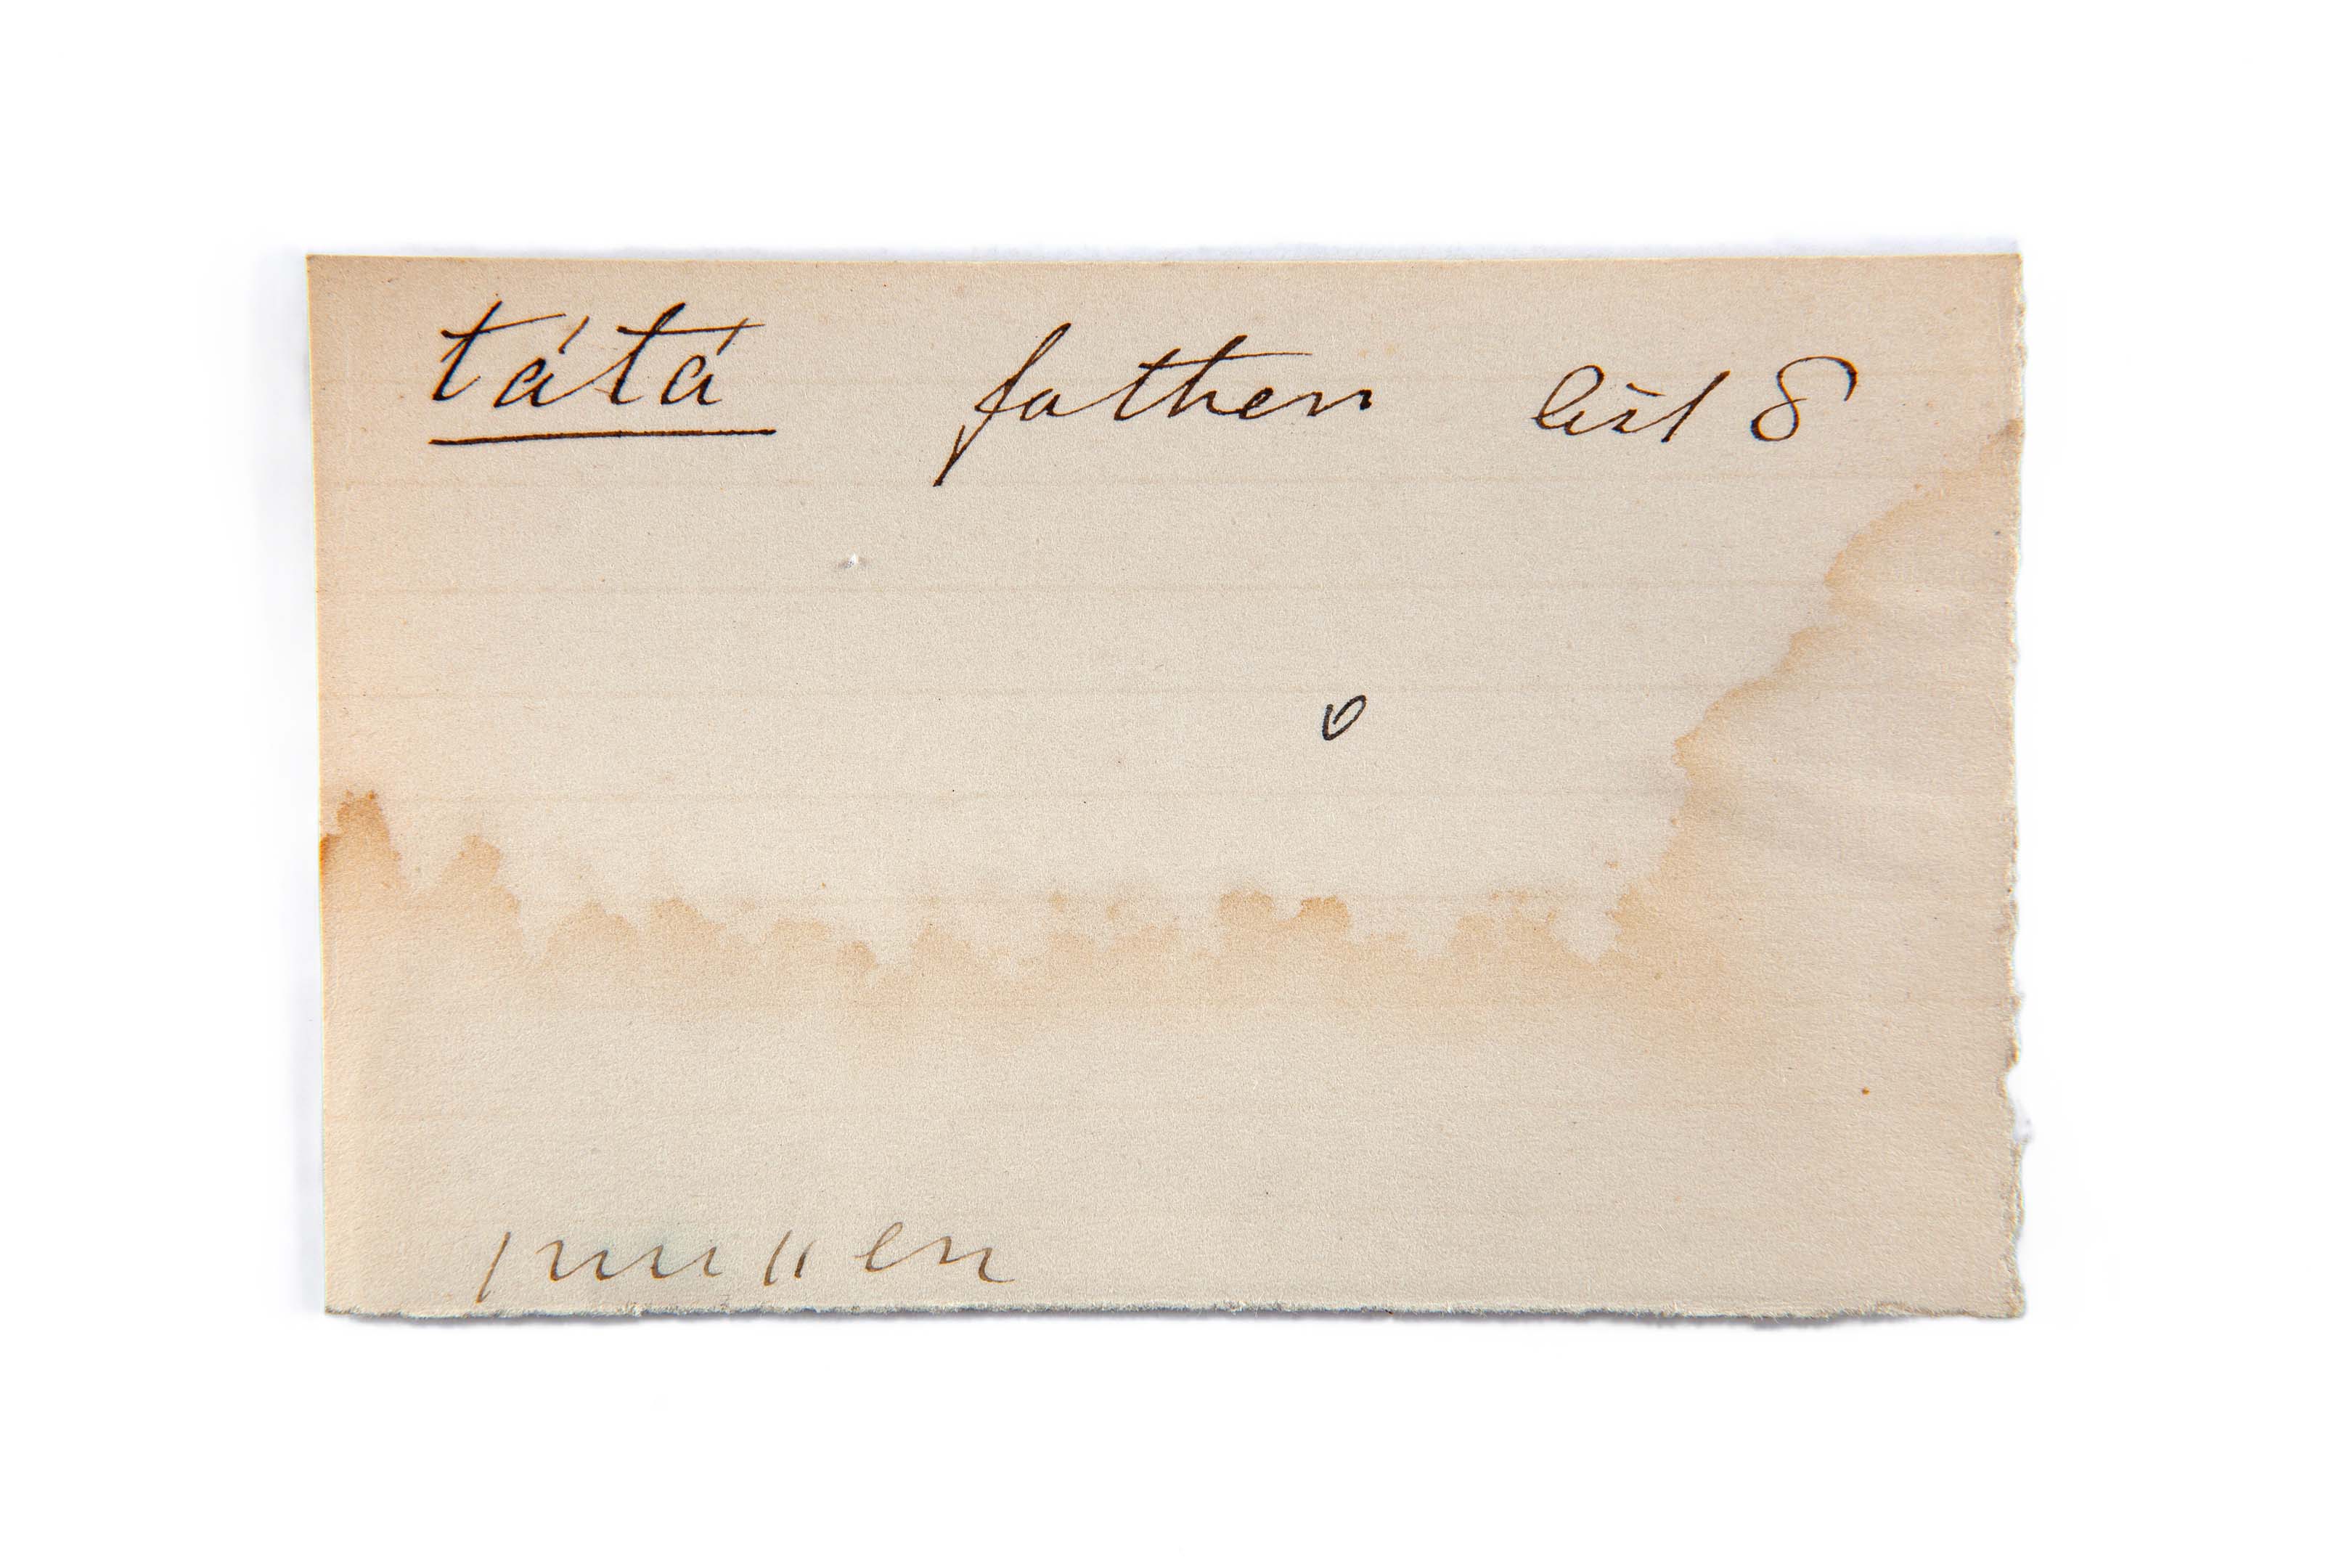 tátá father list 8